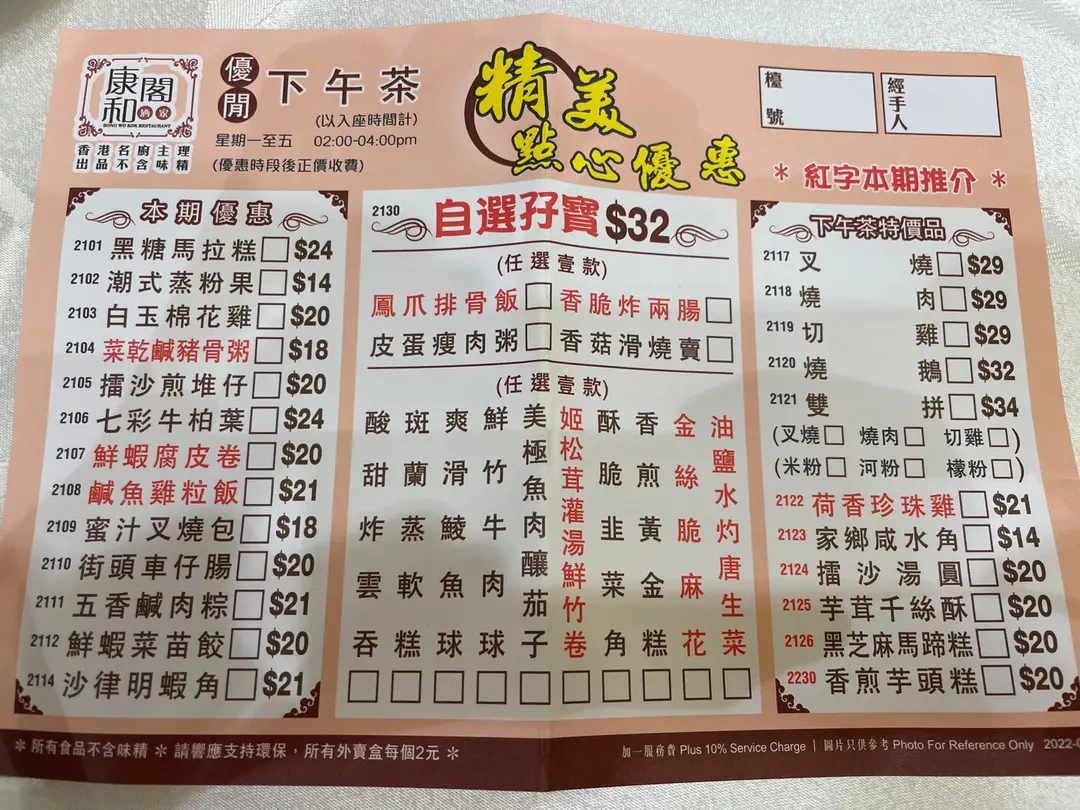 康和閣
酒家
HONG WO KOK RESTAURANT
香港名廚主理
出品不含味精
優閒 下午茶
(以入座時間計)
星期一至五 02:00-04:00pm
(優惠時段後正價收費)
精美
點心優惠
檯號
經手人
* 紅字本期推介 *
本期優惠
2101 黑糖馬拉糕 $24
2102 潮式蒸粉果 $14
2103 白玉棉花雞 $20
2104 菜乾鹹豬骨粥 $18
2105 擂沙煎堆仔 $20
2106 七彩牛柏葉 $24
2107 鮮蝦腐皮卷 $20
2108 鹹魚雞粒飯 $21
2109 蜜汁叉燒包 $18
2110 街頭車仔腸 $20
2111 五香鹹肉粽 $21
2112 鮮蝦菜苗餃 $20
2114 沙律明蝦角 $21
2130 自選孖寶 $32
(任選壹款)
鳳爪排骨飯 香脆炸兩腸
皮蛋瘦肉粥 香菇滑燒賣
(任選壹款)
酸甜炸雲吞
斑蘭蒸軟糕
爽滑鯪魚球
鮮竹牛肉球
美極魚肉釀茄子
姬松茸灌湯鮮竹卷
酥脆韭菜角
香煎黃金糕
金絲脆麻花
油鹽水灼唐生菜
下午茶特價品
2117 叉燒 $29
2118 燒肉 $29
2119 切雞 $29
2120 燒鵝 $32
2121 雙拼 $34
(叉燒 燒肉 切雞)
(米粉 河粉 檬粉)
2122 荷香珍珠雞 $21
2123 家鄉咸水角 $14
2124 擂沙湯圓 $20
2125 芋茸千絲酥 $20
2126 黑芝麻馬蹄糕 $20
2230 香煎芋頭糕 $20
* 所有食品不含味精 * 請響應支持環保，所有外賣盒每個2元 *
加一服務費 Plus 10% Service Charge | 圖片只供參考 Photo For Reference Only 2022-0